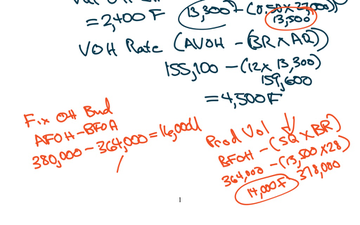 = 2,400 F
13,300 - (0.50 x 27,000)
13,500
VOH Rate (AVOH - (BR x AQ))
155,100 - (12 x 13,300)
159,600
= 4,500 F
Fix OH Bud
AFOH - BFOH
380,000 - 364,000 = 16,000 U
Prod Vol
BFOH - (SQ x BR)
364,000 - (13,500 x 28)
14,000 F
378,000